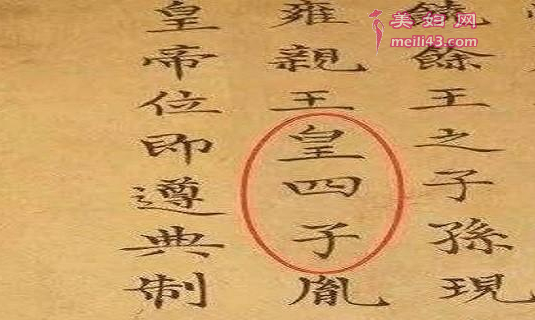 饒餘王之子孫現
雍親王皇四子胤
皇帝位即遵典制
美妇网
meili43.com